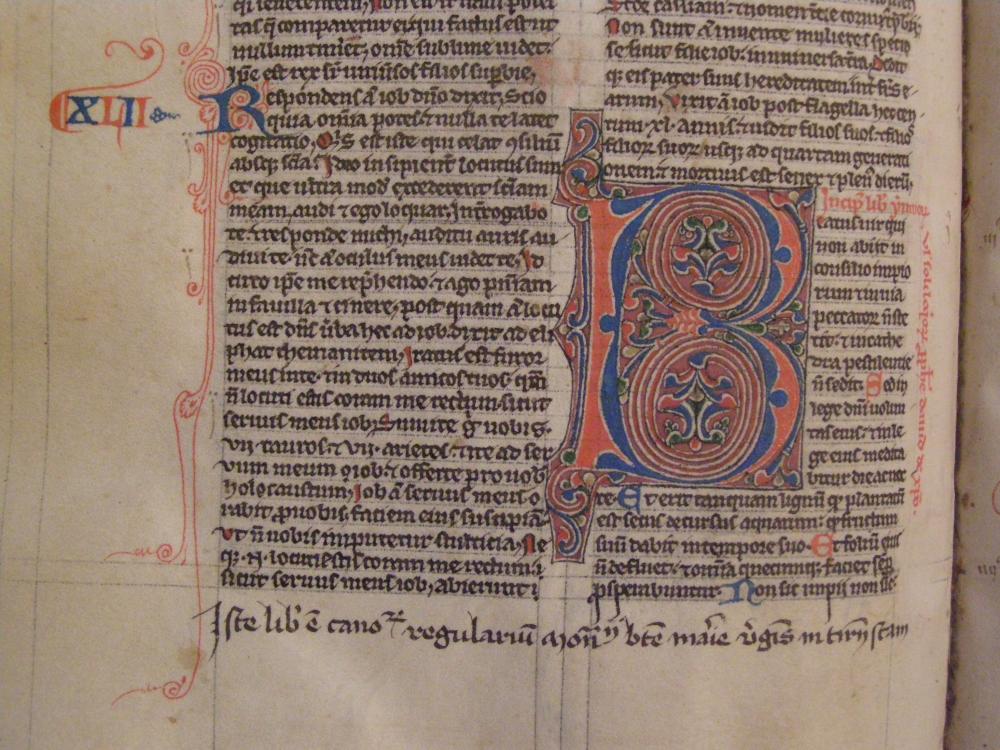 tasq̃ comparetur ei qui factus est ut
nullum timeret, om̃e sublime uidet:
Ip̃e est rex sr̃ uniũsos filios suꝑbie,
XLII
Respondens aũ iob dño dixit; Scio
quia om̃ia potes & nulla te latet
cogitatio, Q̃s est iste qui celat ɔsiliũ
absq; scĩa? Ideo insipient̃ locutus sum
et que ultra modũ excederent sciam̃
meam, audi & ego loquar, Int̃rogabo
te & responde michi, auditu auris au
diui te, ñc aũ oculus meus uidet te, Id
circo ip̃e me rep̃hendo & ago pniam̃
in fauilla & cinere, post quam aũ locu
tus est dñs ũba hec ad iob, dixit ad eli
phat themanitem, Iratus est furor
meus in te & in duos amicos tuos qm̃
ñ locuti estis coram me rectum, sicut
seruus meus iob, Sumite g̃ uobis
vii tauros & vii arietes & ite ad ser
uum meum iob & offerte pro uob
holocaustum, Iob aũ seruus meus o
rabit ꝓ uobis, faciem eius suscipiã
ut ñ uobis imputetur stulticia, Ne
q; .n. locuti estis coram me rectum,
sicut seruus meus iob, abierunt
non sunt aũ inuente mulieres specio
se sicut filie iob in uniuersa tr̃a, Dedit
q; eis pater suus hereditatem int̃ frs̃ e
arum, Vixit aũ iob post flagella hec cen
tum .xl. annis, & uidit filios suos & filios
filiorũ suorũ usq; ad quartam generati
onem & mortuus est senex & plenꝰ dierũ,
Incip̃ lib̃
Beatus uir qui
non abiit in
consilio impio
rum & in uia
peccatorũ ñ ste
tit: & in cathe
dra pestilentie
ñ sedit: Sed in
lege dñi uolun
tas eius: & in le
ge eius medita
bitur die ac noc
te. Et erit tanquam lignũ q̃ plantatũ
est secus decursus aquarum: q̃ fructum
suũ dabit in tempore suo. Et foliũ eius
ñ defluet: & om̃ia quecumq; faciet sep̃
ꝓsperabuntur. Non sic impii non sic:
Iste lib̃ ẽ canoꝝ regulariũ mon̄ bt̃e marie v̓gĩs in